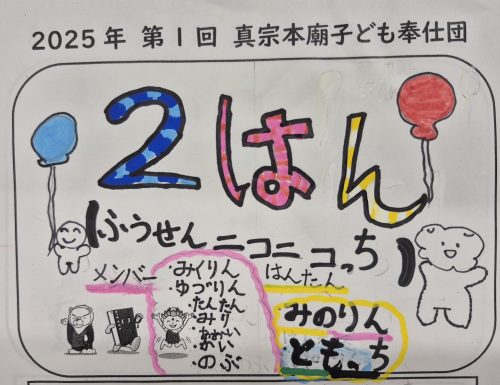 2025年 第1回 真宗本廟子ども奉仕団
2はん
(ふうせんニコニコっち)
メンバー
・みくりん
・ゆづりん
・たんたん
・のぶ
はんたん
みのりん
ともっち